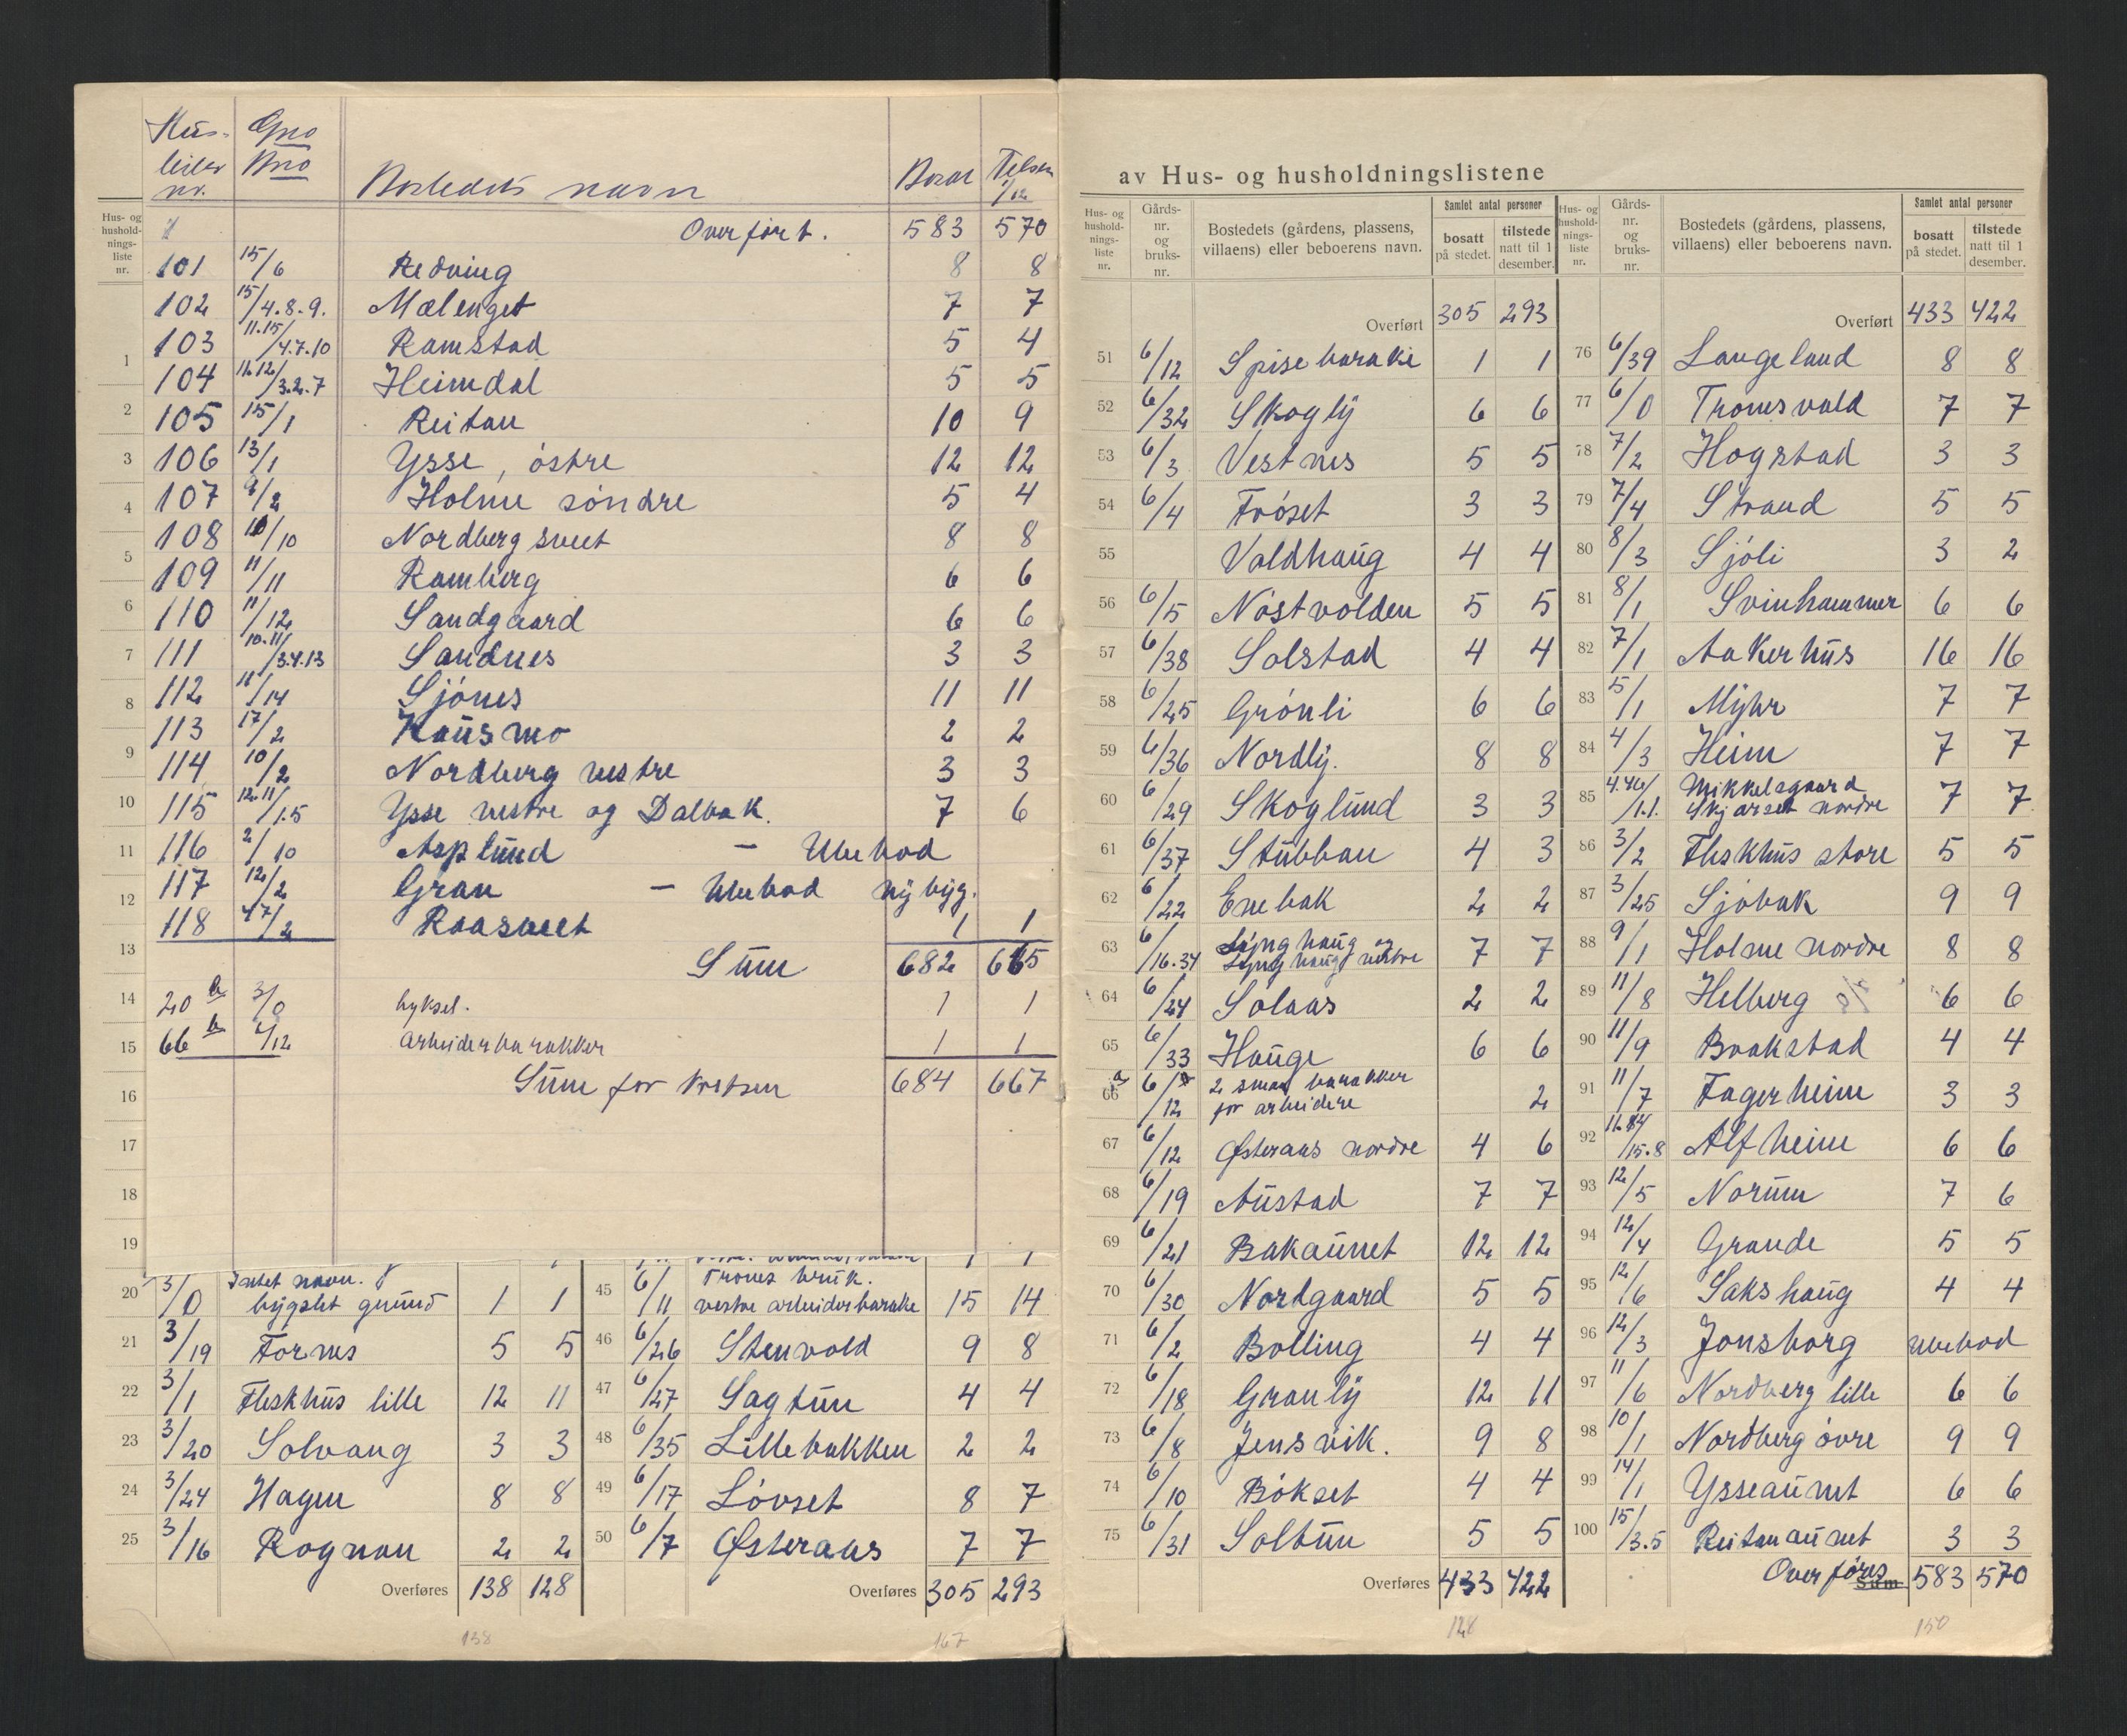 Hus- Gno
lister Bno
nr. Bostedets navn Bosat Tilst. 1/12
Hus- og
hushold-
nings-
liste
nr.
Overført. 583 570
101 15/6 Redving 8 8
102 15/4.8.9. Mælenget 7 7
103 11.15/4.7.10 Ramstad 5 4
104 11.12/3.2.7 Heimdal 5 5
105 15/1 Reitan 10 9
106 13/1 Ysse, östre 12 12
107 9/2 Holme söndre 5 4
108 10/10 Nordberg sveet 8 8
109 11/11 Ramberg 6 6
110 11/12 Sandgaard 6 6
111 10.11/3.4.13 Sandnes 3 3
112 11/14 Sjönes 11 11
113 17/2 Kausmo 2 2
114 10/2 Nordberg vestre 3 3
115 12.11/1.5 Ysse vestre og Dalbak. 7 6
116 2/10 Asplund – Ubebod
117 12/2 Gran – Ubebod nybyg.
118 47/2 Raasveet 1 1
Sum 682 665
20 b 3/0 byksel. 1 1
66 b 6/12 arbeiderbarakker 1 1
Sum for kretsen 684 667
1
2
3
4
5
6
7
8
9
10
11
12
13
14
15
16
17
18
19
20 3/0 Intet navn.
bygslet grund 1 1
21 3/19 Fornes 5 5
22 3/1 Fleskhus lille 12 11
23 3/20 Solvang 3 3
24 3/24 Hagen 8 8
25 3/16 Rognan 2 2
Overføres 138 128
138
45 6/11 Trones bruk.
vestre arbeiderbarake 15 14
46 6/26 Stenvold 9 8
47 6/27 Sagtun 4 4
48 6/35 Lillebakken 2 2
49 6/17 Lövset 8 7
50 6/7 Østeraas 7 7
Overføres 305 293
167
av Hus- og husholdningslistene
Hus- og
hushold-
nings-
liste
nr.
Gårds-
nr.
og
bruks-
nr.
Bostedets (gårdens, plassens,
villaens) eller beboerens navn.
Samlet antal personer
bosatt
på stedet.
tilstede
natt til 1
desember.
Overført 305 293
51 6/12 Spisebarake 1 1
52 6/32 Skogly 6 6
53 6/3 Vestnes 5 5
54 6/4 Fröset 3 3
55 Valdhaug 4 4
56 6/5 Nöstvolden 5 5
57 6/38 Solstad 4 4
58 6/25 Grönli 6 6
59 6/36 Nordly. 8 8
60 6/29 Skoglund 3 3
61 6/37 Stubban 4 3
62 6/22 Enebak 2 2
63 6/16.34 Lynghaug og
Lynghaug vestre 7 7
64 6/24 Solaas 2 2
65 6/33 Hauge 6 6
66 a 6/12 2 smaa barakker
for arbeidere 2
67 6/12 Østeraas nordre 4 6
68 6/19 Austad 7 7
69 6/21 Bakaunet 12 12
70 6/30 Nordgaard 5 5
71 6/2 Bolling 4 4
72 6/18 Granly 12 11
73 6/8 Jensvik. 9 8
74 6/10 Bökset 4 4
75 6/31 Soltun 5 5
Overføres 433 422
128
Hus- og
hushold-
nings-
liste
nr.
Gårds-
nr.
og
bruks-
nr.
Bostedets (gårdens, plassens,
villaens) eller beboerens navn.
Samlet antal personer
bosatt
på stedet.
tilstede
natt til 1
desember.
Overført 433 422
76 6/39 Langeland 8 8
77 6/0 Tronesvald 7 7
78 7/2 Hogstad 3 3
79 7/4 Strand 5 5
80 8/3 Sjöli 3 2
81 8/1 Svinhammer 6 6
82 7/1 Aakerhus 16 16
83 5/1 Myhr 7 7
84 4/3 Heim 7 7
85 4.46/1.1. Mikkelsgaard
Skjærset nordre 7 7
86 3/2 Fleskhus store 5 5
87 3/25 Sjöbak 9 9
88 9/1 Holme nordre 8 8
89 11/8 Helberg 6 6
90 11/9 Brakstad 4 4
91 11/7 Fagerheim 3 3
92 /15.8 Alfheim 6 6
93 12/5 Norum 7 6
94 12/4 Grande 5 5
95 12/6 Sakshaug 4 4
96 12/3 Jonsborg Ubebod
97 11/6 Nordberg lille 6 6
98 10/1 Nordberg övre 9 9
99 14/1 Ysseaunet 6 6
100 15/3.5 Reitanaunet 3 3
Overföres Sum 583 570
150